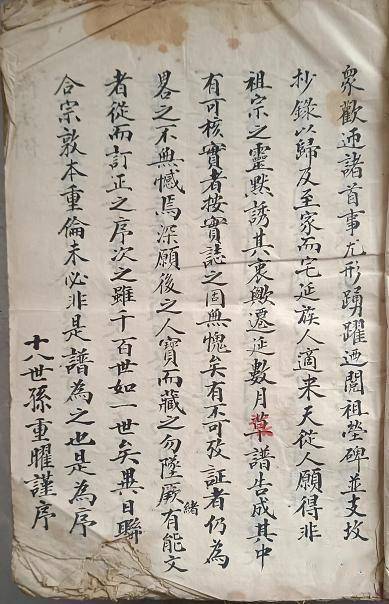 眾歡迎諸首事尤形踴躍迺閱祖塋碑並支坟
抄錄以歸及至家而宅延族人適来天從人願得非
祖宗之靈默誘其衷歟遷延數月草譜告成其中
有可核實者按實誌之固無愧矣有不可攷証者仍為
畧之不無憾焉深願後之人寶而藏之勿墜厥緒有能文
者從而訂正之序次之雖千百世如一世矣異日聯
合宗敦本重倫未必非是譜為之也是為序
十八世孫重曜謹序